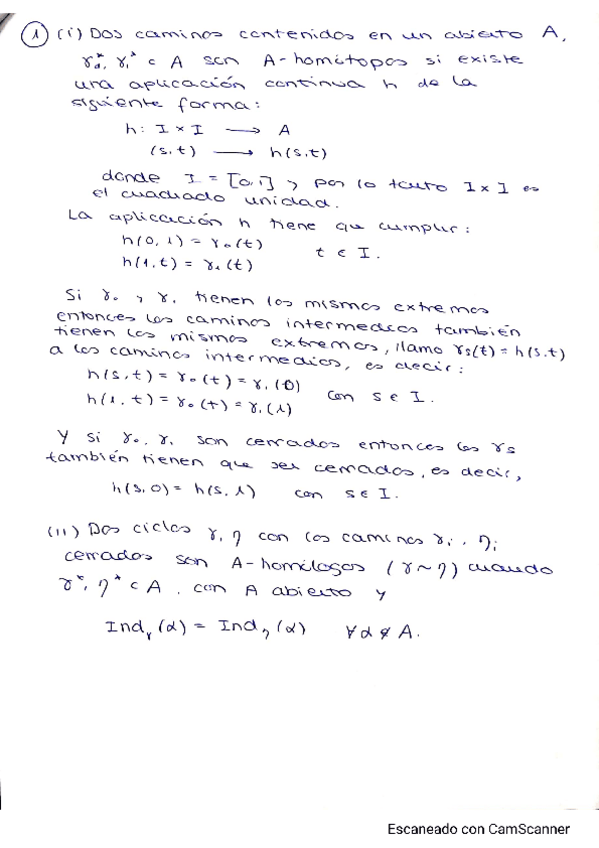 ① (i) Dos caminos contenidos en un abierto A,
γ₀*, γ₁* ⊂ A son A-homótopos si existe
una aplicación continua h de la
siguiente forma:
h: I × I ⟶ A
(s,t) ⟶ h(s,t)
donde I = [0,1] y por lo tanto I×I es
el cuadrado unidad.
La aplicación h tiene que cumplir:
h(0,1) = γ₀(t)
t ∈ I.
h(1,t) = γ₁(t)
Si γ₀ y γ₁ tienen los mismos extremos
entonces los caminos intermedios también
tienen los mismos extremos, llamo γs(t) = h(s,t)
a los caminos intermedios, es decir:
h(s,t) = γ₀(t) = γ₁(0)
con s ∈ I.
h(1,t) = γ₀(t) = γ₁(1)
Y si γ₀, γ₁ son cerrados entonces los γs
también tienen que ser cerrados, es decir,
h(s,0) = h(s,1) con s ∈ I.
(ii) Dos ciclos γ, η con los caminos γi, ηi
cerrados son A-homólogos (γ~η) cuando
γ*, η* ⊂ A, con A abierto y
Indγ(α) = Indη(α) ∀α ∉ A.
Escaneado con CamScanner